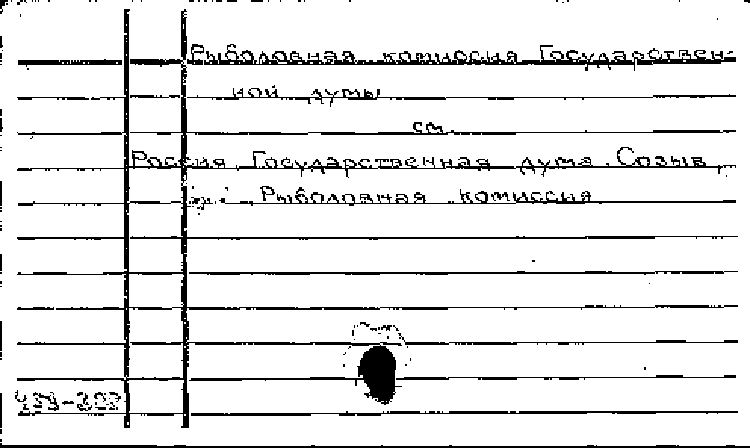 Рыболовная комиссия Государствен-
ной думы
см.
Россия. Государственная дума. Созыв,
Рыболовная комиссия